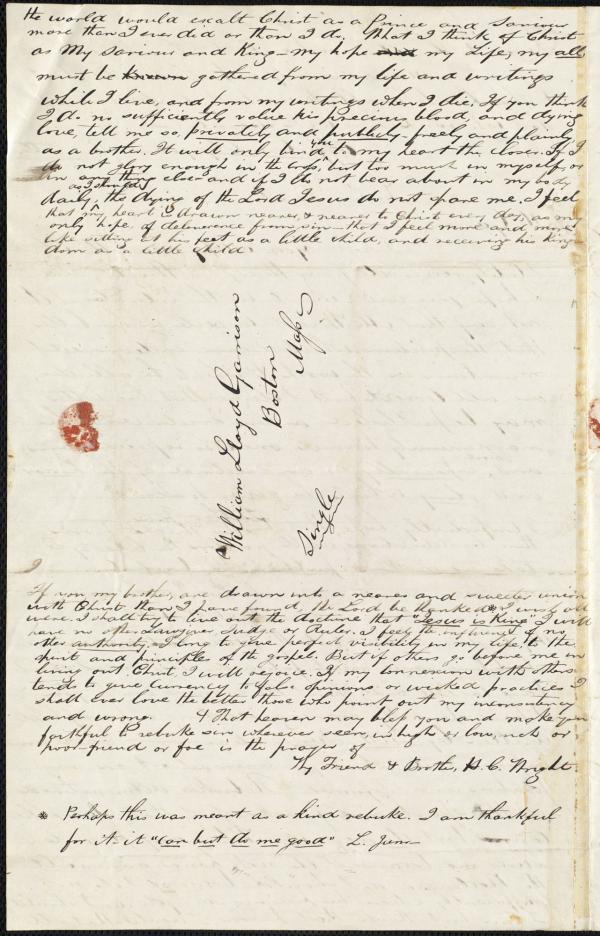 He world would exalt Christ as a Prince and Saviour
more than I ever did or than I do. What I think of Christ
as My Saviour and King — my hope and my Life, my all
must be known gathered from my life and writings
while I live, and from my writings when I die. If you think
I do no sufficiently value his precious blood, and dying
love, tell me so, privately and publicly freely and plainly
as a brother. It will only bind you to my heart the closer. If I
do not glory enough in the cross, but too much in myself, or
in any thing else — and if I do not bear about in my body
as I should
daily, the dying of the Lord Jesus do not spare me. I feel
that my heart is drawn nearer & nearer to Christ every day, as my
only hope of deliverence from sin — that I feel more and more
like sitting at his feet as a little child, and receiving his King-
dom as a little child
William Lloyd Garrison
Boston
Mass
Single
If you my brother, are drawn into a nearer and sweeter union
with Christ than I have found, the Lord be thanked * I wish all
were. I shall try to live out the doctrine that "Jesus is King" I will
have no other Lawgiver Judge or Ruler. I feel the influence of no
other authority. I long to give perfect visibility in my life, to the
spirit and principle of the gospel. But if others go before me in
living out Christ, I will rejoice. If my connexion with others
tends to give currency to false opinions or wicked practices I
shall ever love the better those who point out my inconsistency
and wrong. & That heaven may bless you and make you
faithful to rebuke sin wherever seen, in high or low, rich or
poor friend or foe is the prayer of
Thy Friend & Brother, H. C. Wright.
* Perhaps this was meant as a kind rebuke. I am thankful
for it — it "can but do me good"